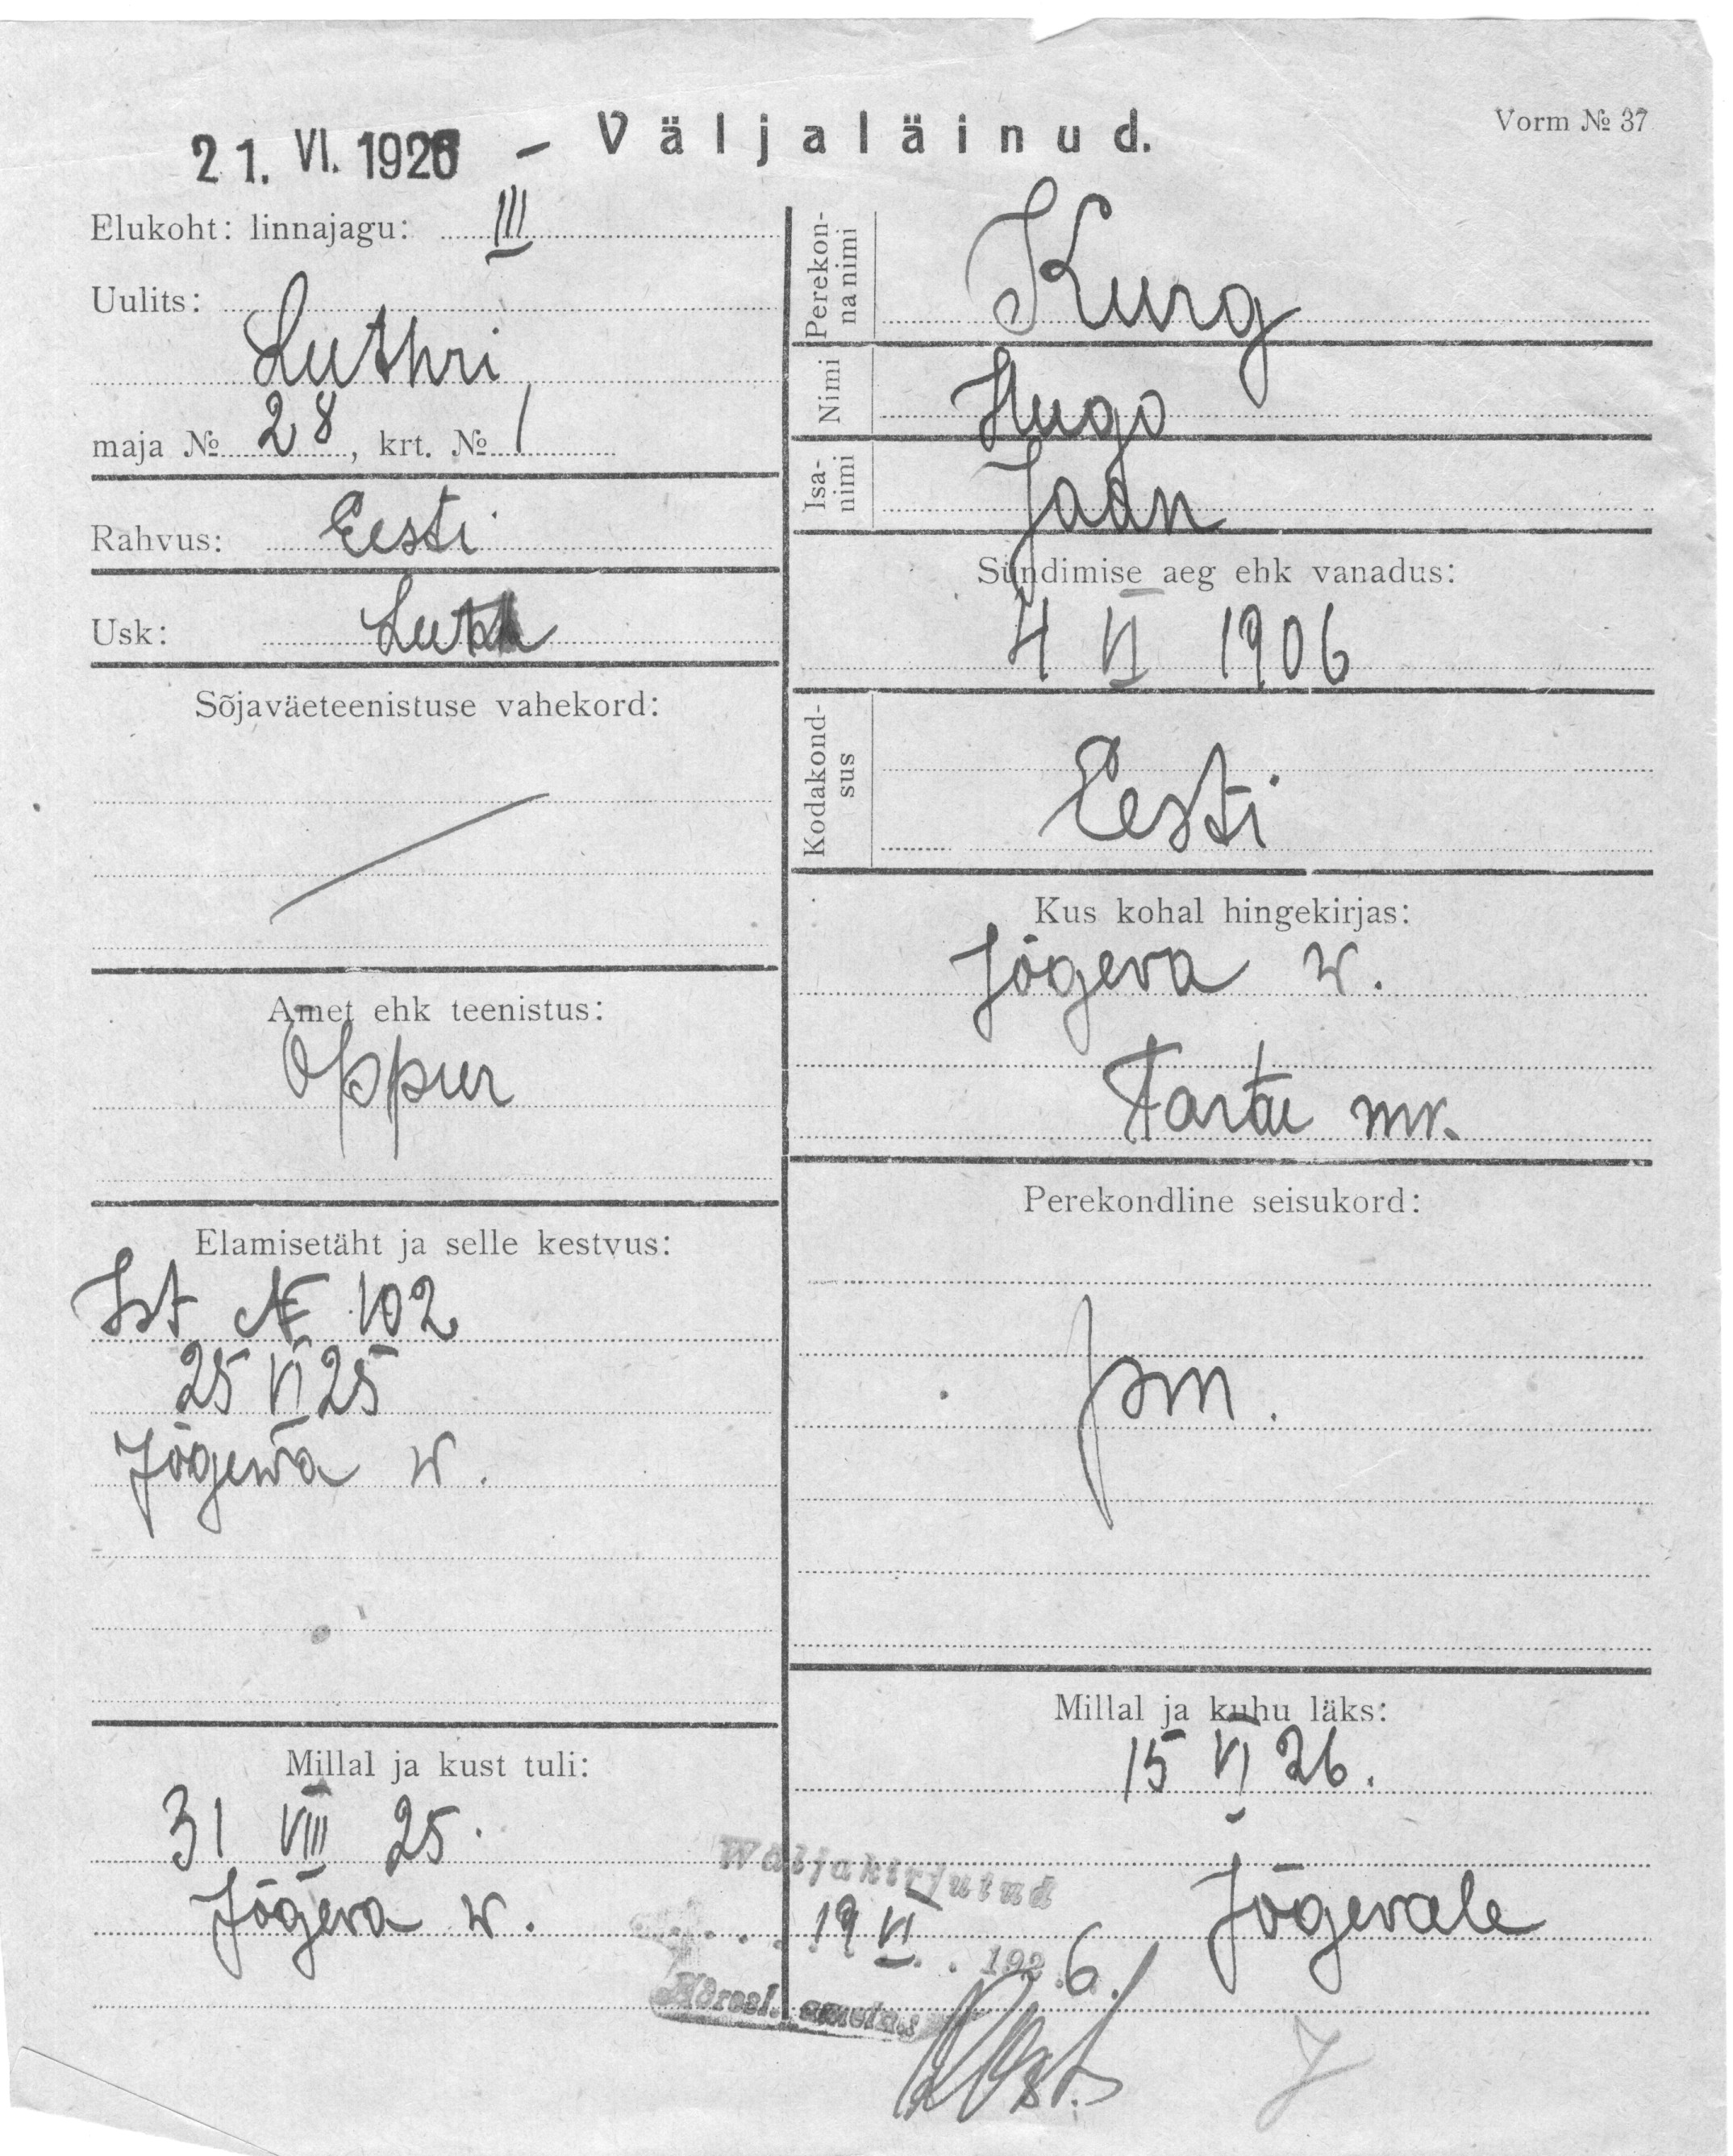 Vorm № 37
21. VI. 1926 — Väljaläinud.
Elukoht: linnajagu: III
Uulits:
Luthri
maja № 28, krt. № 1
Rahvus: Eesti
Usk: Luth
Sõjaväeteenistuse vahekord:
Amet ehk teenistus:
Õppur
Elamisetäht ja selle kestvus:
Ist № 102
25 VI 25
Jõgewa w.
Millal ja kust tuli:
31 VIII 25.
Jõgeva w.
Perekon-
na nimi
Kurg
Nimi
Hugo
Isa-
nimi
Jaan
Sündimise aeg ehk vanadus:
4 VI 1906
Kodakond-
sus
Eesti
Kus kohal hingekirjas:
Jõgeva w.
Tartu mr.
Perekondline seisukord:
Millal ja kuhu läks:
15 VI 26.
Jõgevale
Wäljakirjutud
19 VI. 1926.
Adressl. ametas